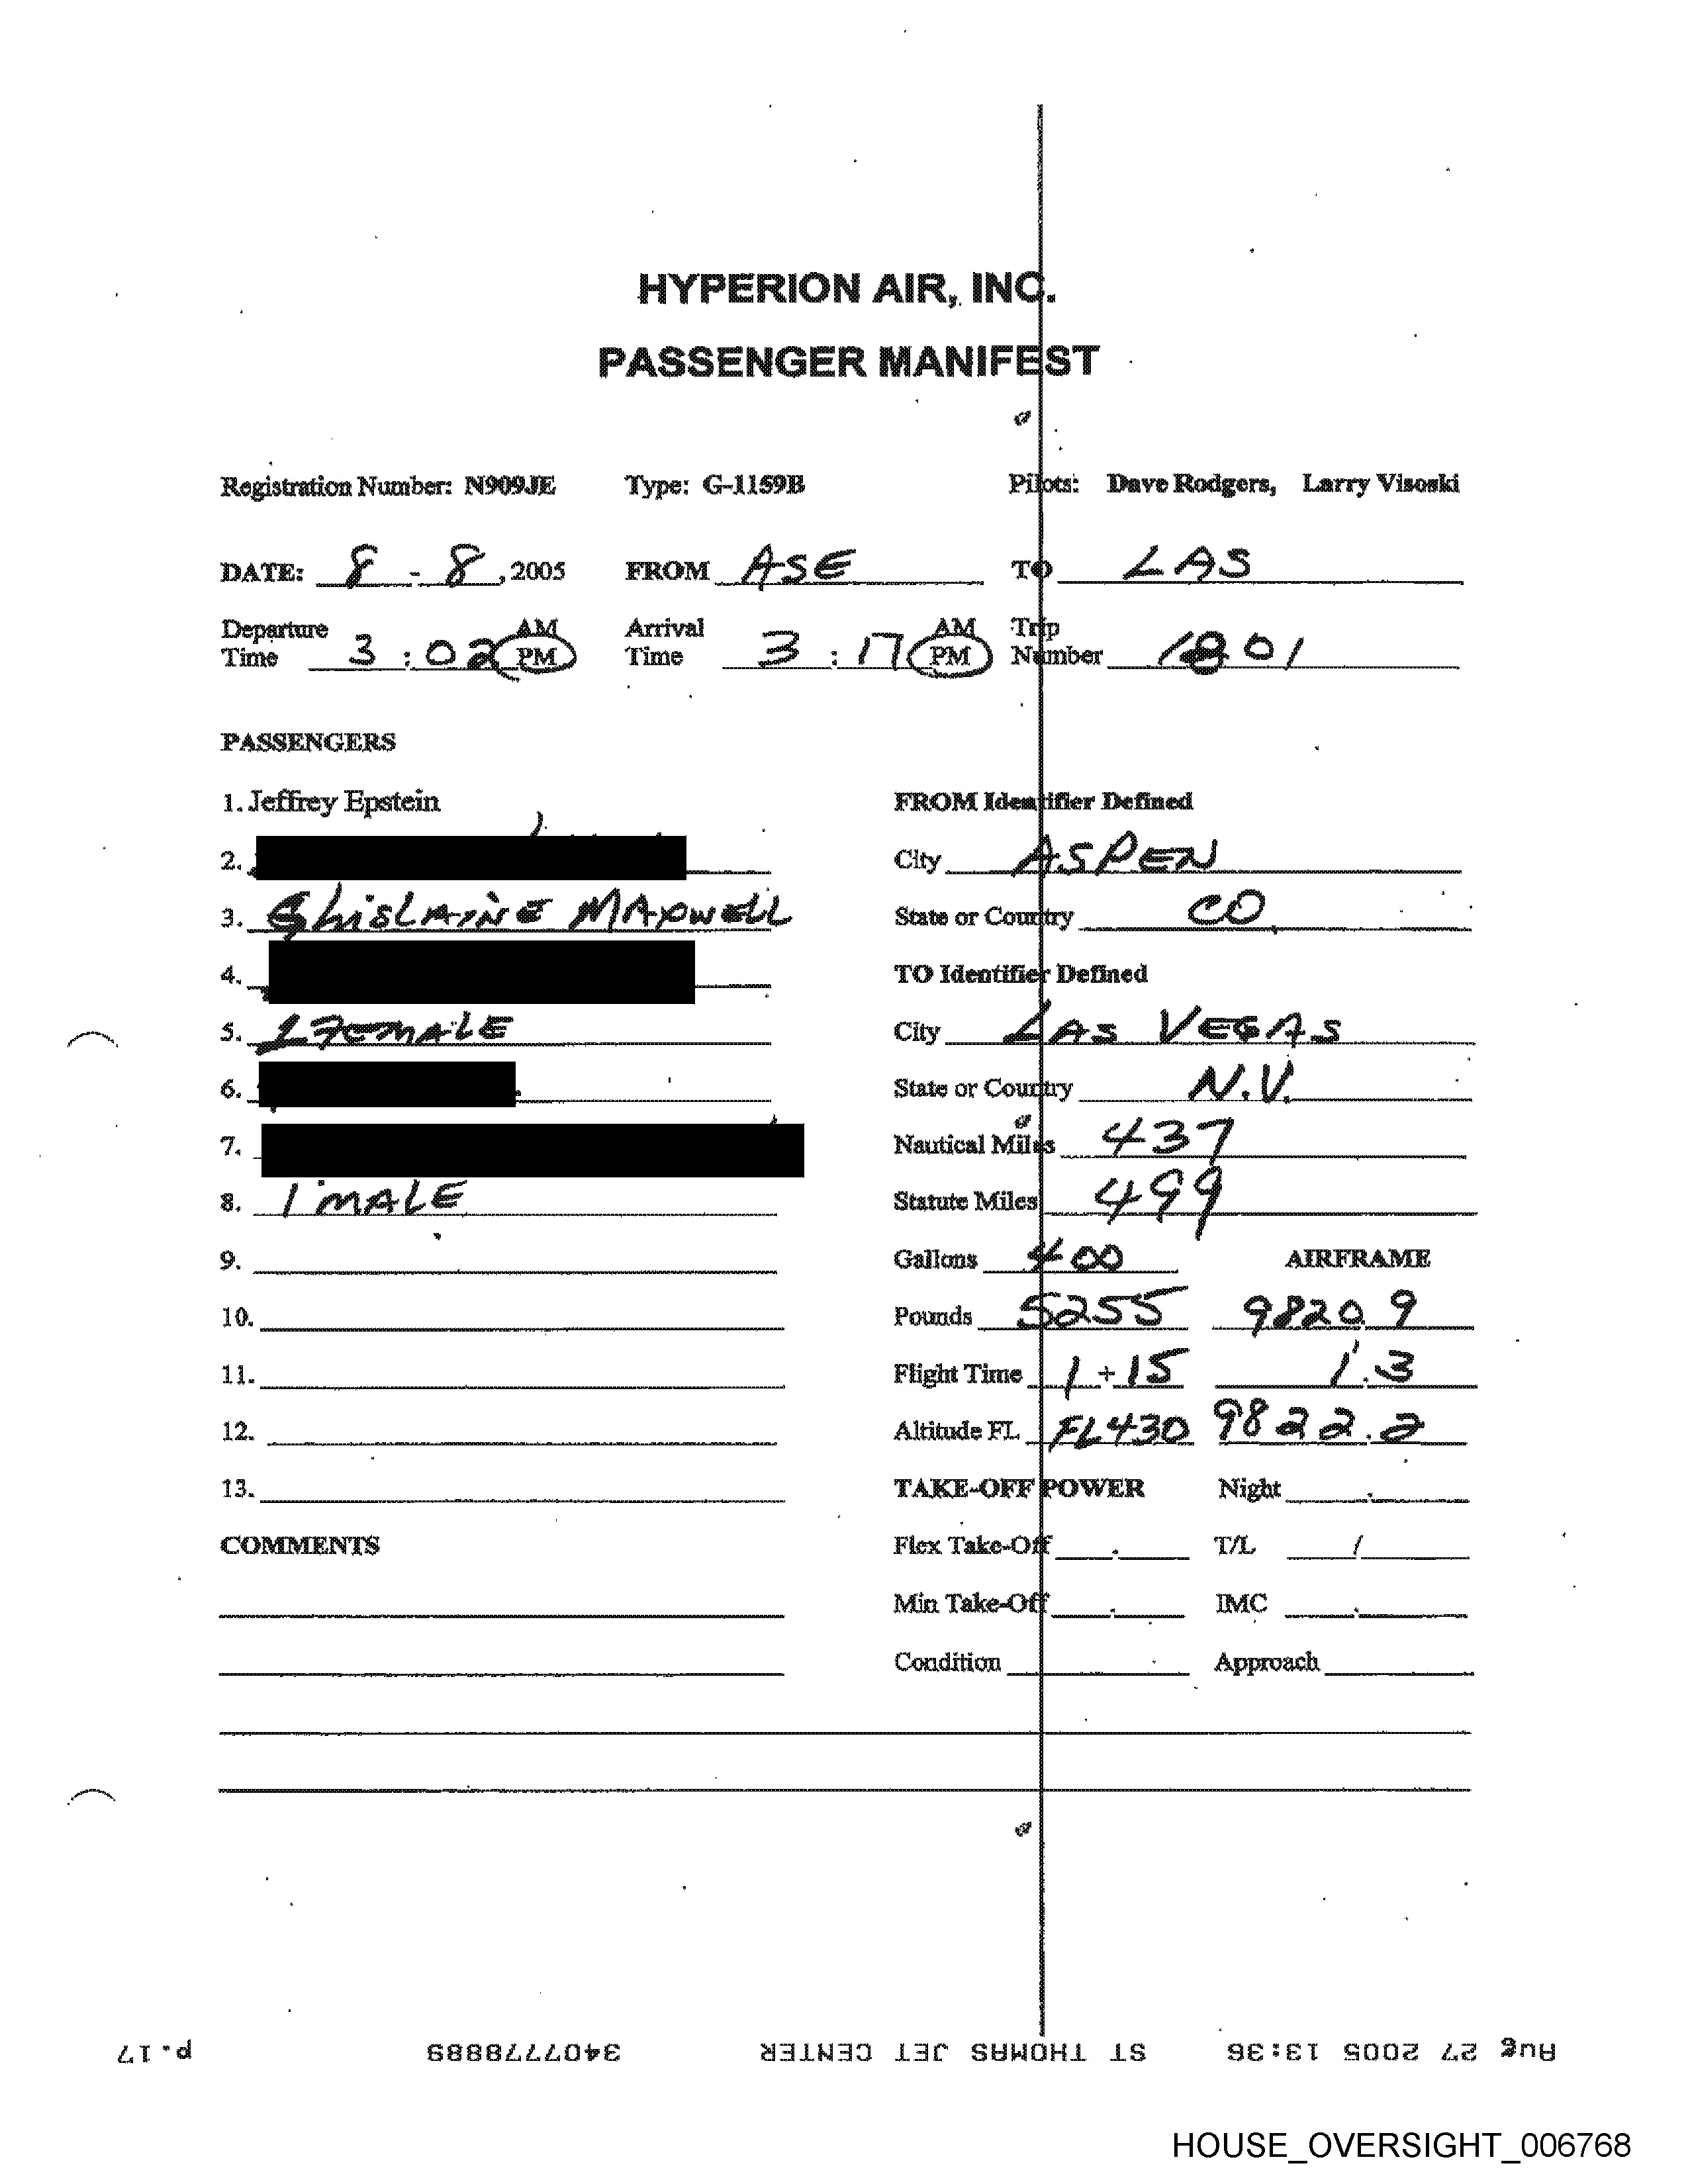 HYPERION AIR, INC.
PASSENGER MANIFEST
Registration Number: N909JE Type: G-1159B Pilots: Dave Rodgers, Larry Visoski
DATE: 8 - 8, 2005 FROM ASE TO LAS
Departure Time 3:02 AM PM Arrival Time 3:17 AM PM Trip Number 1801
PASSENGERS
1. Jeffrey Epstein FROM Identifier Defined
2. City ASPEN
3. GhisLAiNE MAXWELL State or Country CO
4. TO Identifier Defined
5. 1 FEMALE City LAS VEGAS
6. State or Country N.V.
7. Nautical Miles 437
8. 1 MALE Statute Miles 499
9. Gallons 400 AIRFRAME
10. Pounds 5255 9820.9
11. Flight Time 1+15 1.3
12. Altitude FL FL430 9822.2
13. TAKE-OFF POWER Night .
COMMENTS Flex Take-Off . T/L /
Min Take-Off . IMC .
Condition Approach
Aug 27 2005 13:36 ST THOMAS JET CENTER 3407778889 p.17
HOUSE_OVERSIGHT_006768